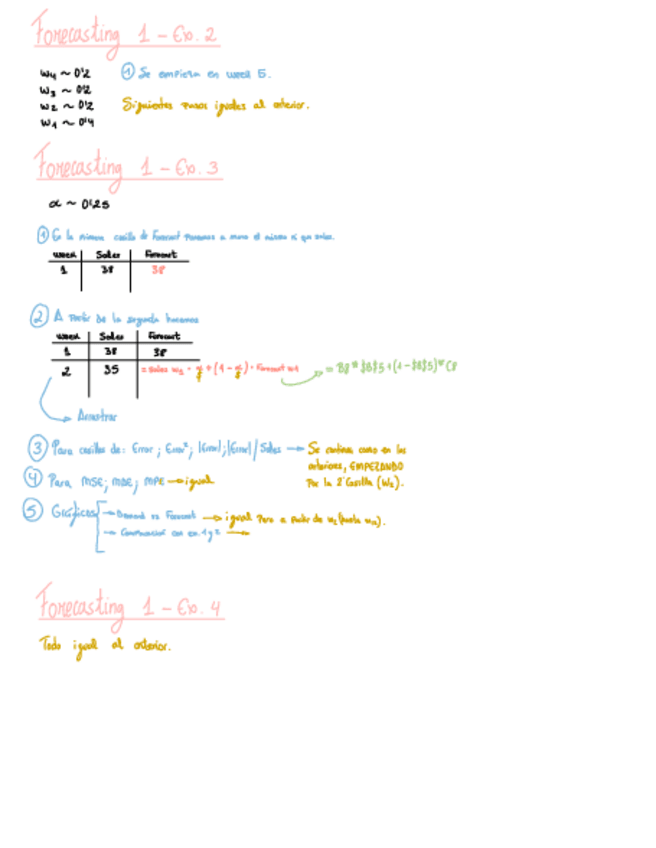 Forecasting 1 - Ex. 2
w4 ~ 0'2
① Se empieza en week 5.
w3 ~ 0'2
w2 ~ 0'2
Siguientes pasos iguales al anterior.
w1 ~ 0'4
Forecasting 1 - Ex. 3
α ~ 0'25
① En la primera casilla de Forecast ponemos a mano el mismo nº que sales.
week Sales Forecast
1 38 38
② A partir de la segunda hacemos
week Sales Forecast
1 38 38
2 35 = Sales w1 · α + (1 - α) · Forecast w1 → = B8 * $B$5 + (1 - $B$5) * C8
Arrastrar
③ Para casillas de: Error; Error²; |Error|; |Error| / Sales → Se continua como en los
anteriores, EMPEZANDO
por la 2ª Casilla (w2).
④ Para MSE; MAE; MPE → igual
⑤ Gráficos
→ Demand vs Forecast → igual pero a partir de w2
→ Comparacion con ex. 1 y 2 →
Forecasting 1 - Ex. 4
Todo igual al anterior.